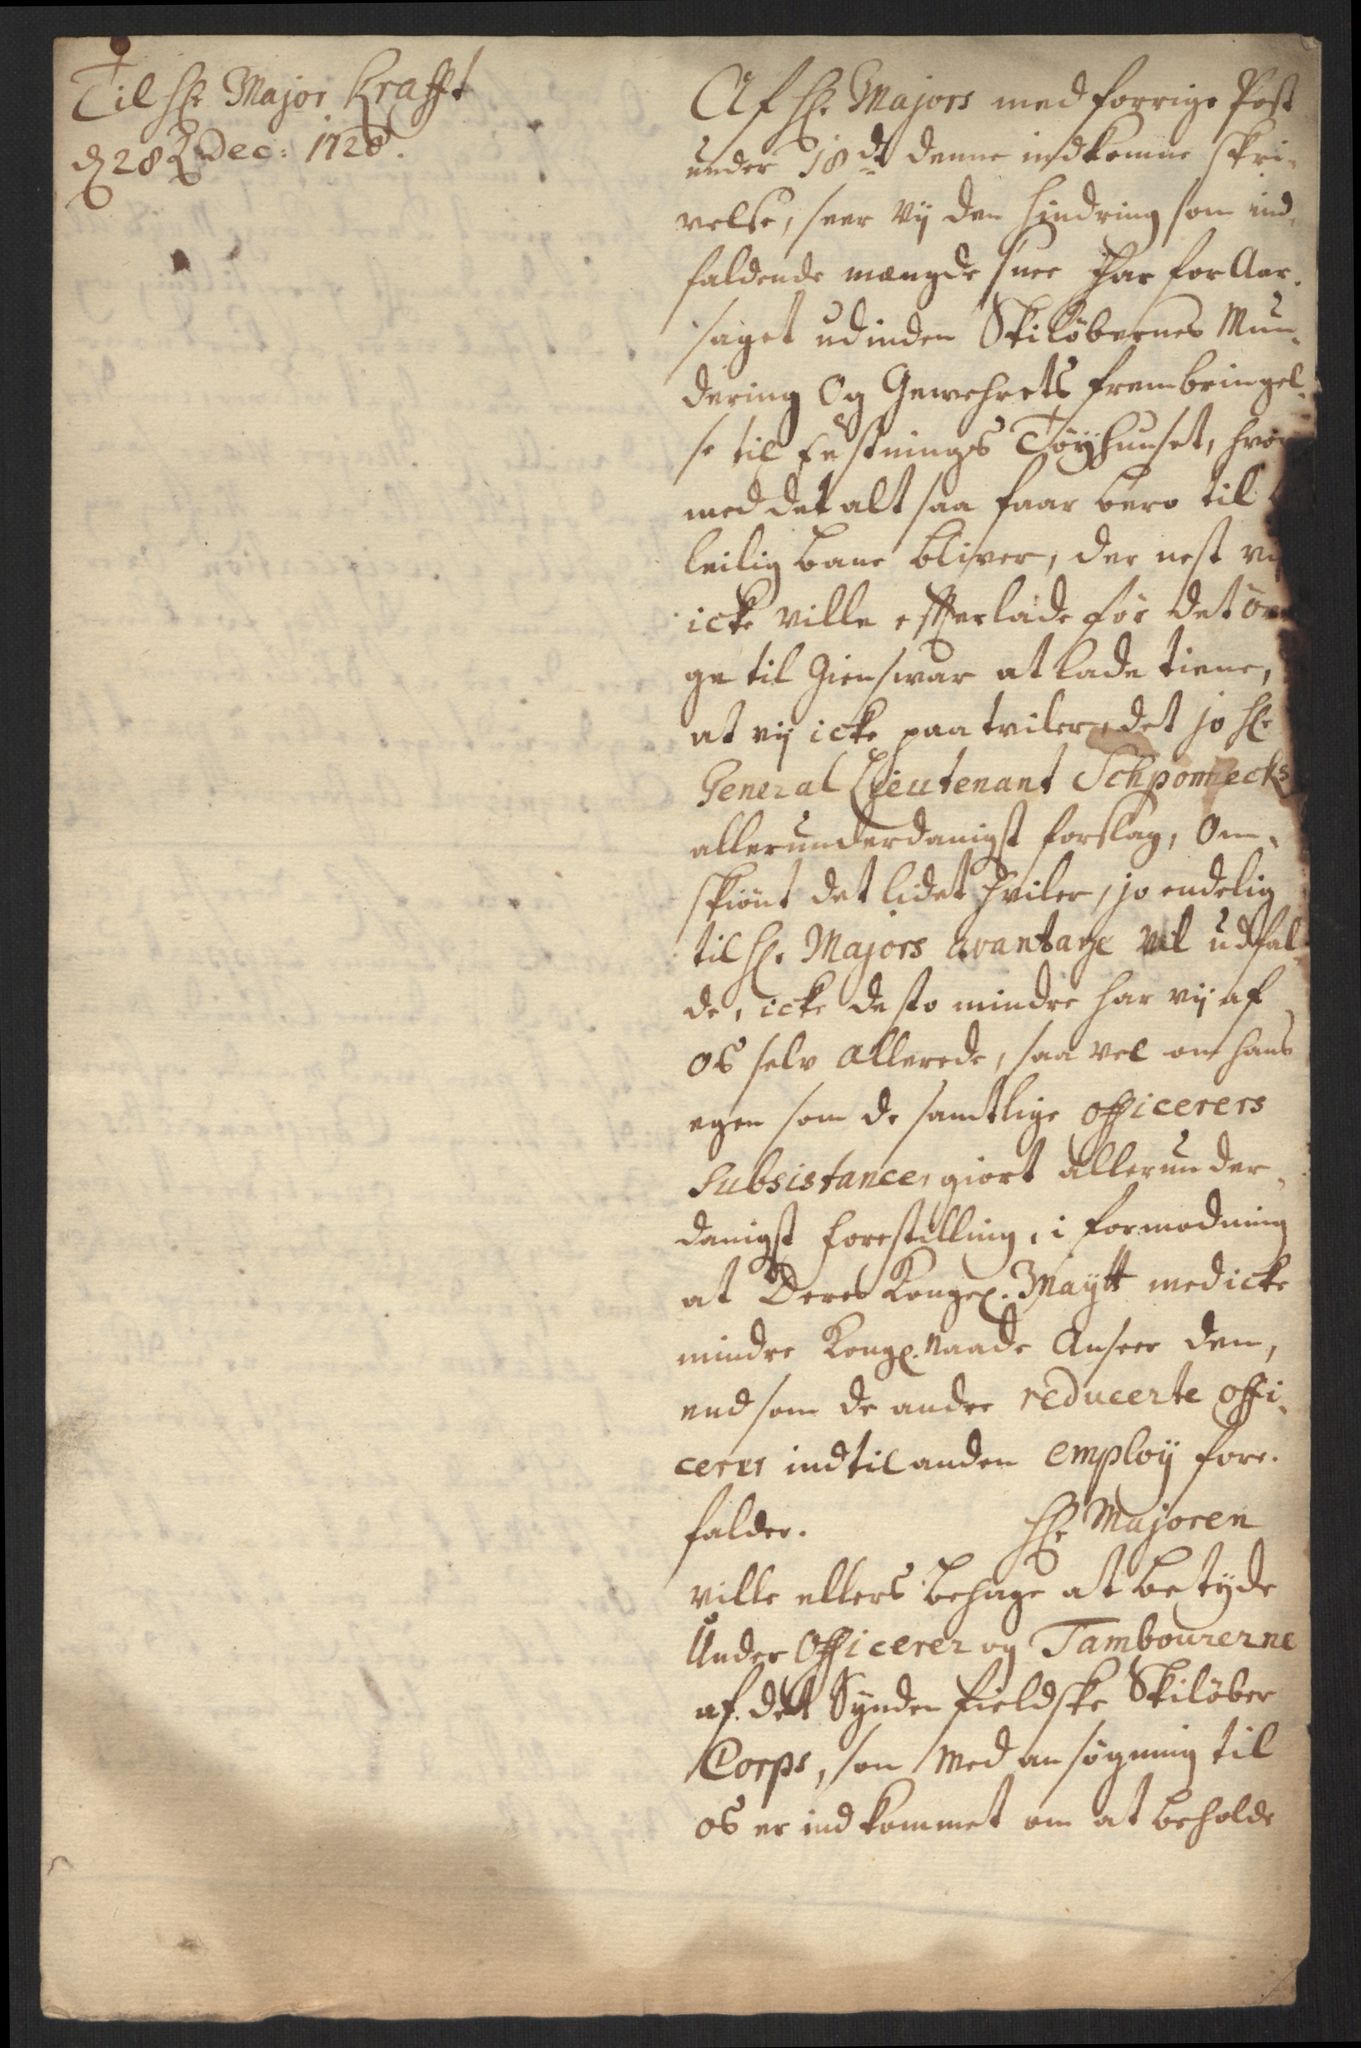 Til Hr. Major Krafft
d 28 Dec: 1728.
Af Hr. Majors med forrige Post
under 18de denne indkomne skri-
velse, seer vij den Hindring som ind-
faldende mængde snee har for Aar-
saget udinden Skilöbernes Mun-
dering Og Gewehrets frembringel-
se til Festnings Töyhuuset, hvor
med det alt saa faar bero til
leilig bane bliver, der nest vi
icke ville efterlade for det öv
ge til Giensvar at lade tiene,
at vij icke paa tviler, det jo Hr.
General Lieutenant Schponnecks
allerunderdanigst forslag, Om-
skiönt det lidet hviler, jo endelig
til Hr. Majors avantage vil udfal
de, icke desto mindre har vij af
os selv allerede, saa vel om hans
egen som de samtlige officerers
Subsistance, giort allerunder-
danigst forestilling, i formodning
at Deres Kongel. Maytt med icke
mindre Kongl. Naade Anseer dem,
end som de andre reducerte offi-
cerer indtil anden employ fore-
falder. Hr Majoren
ville ellers behage at betyde
Under Officerer og Tambourerne
af det Syndenfieldske Skilöber
Corps, som med ansögning til
os er ind kommet om at beholde